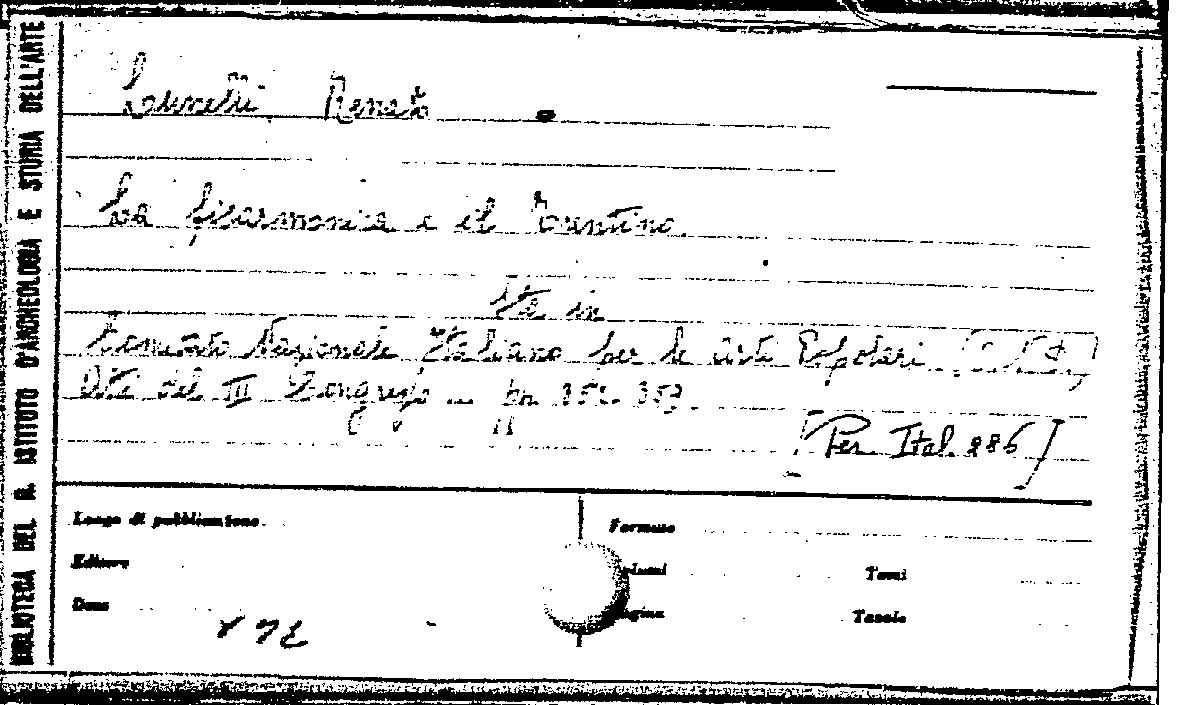 BIBLIOTECA DEL R. ISTITUTO D'ARCHEOLOGIA E STORIA DELL'ARTE
Lunelli Renato
La fisarmonica e il Trentino.
Sta in
Comitato Nazionale Italiano per le Arti Popolari
Atti del III Congresso ... pp.
[Per. Ital. 286]
Luogo di pubblicazione
Formato
Editore
Volumi
Tomi
Data
Pagine
Tavole